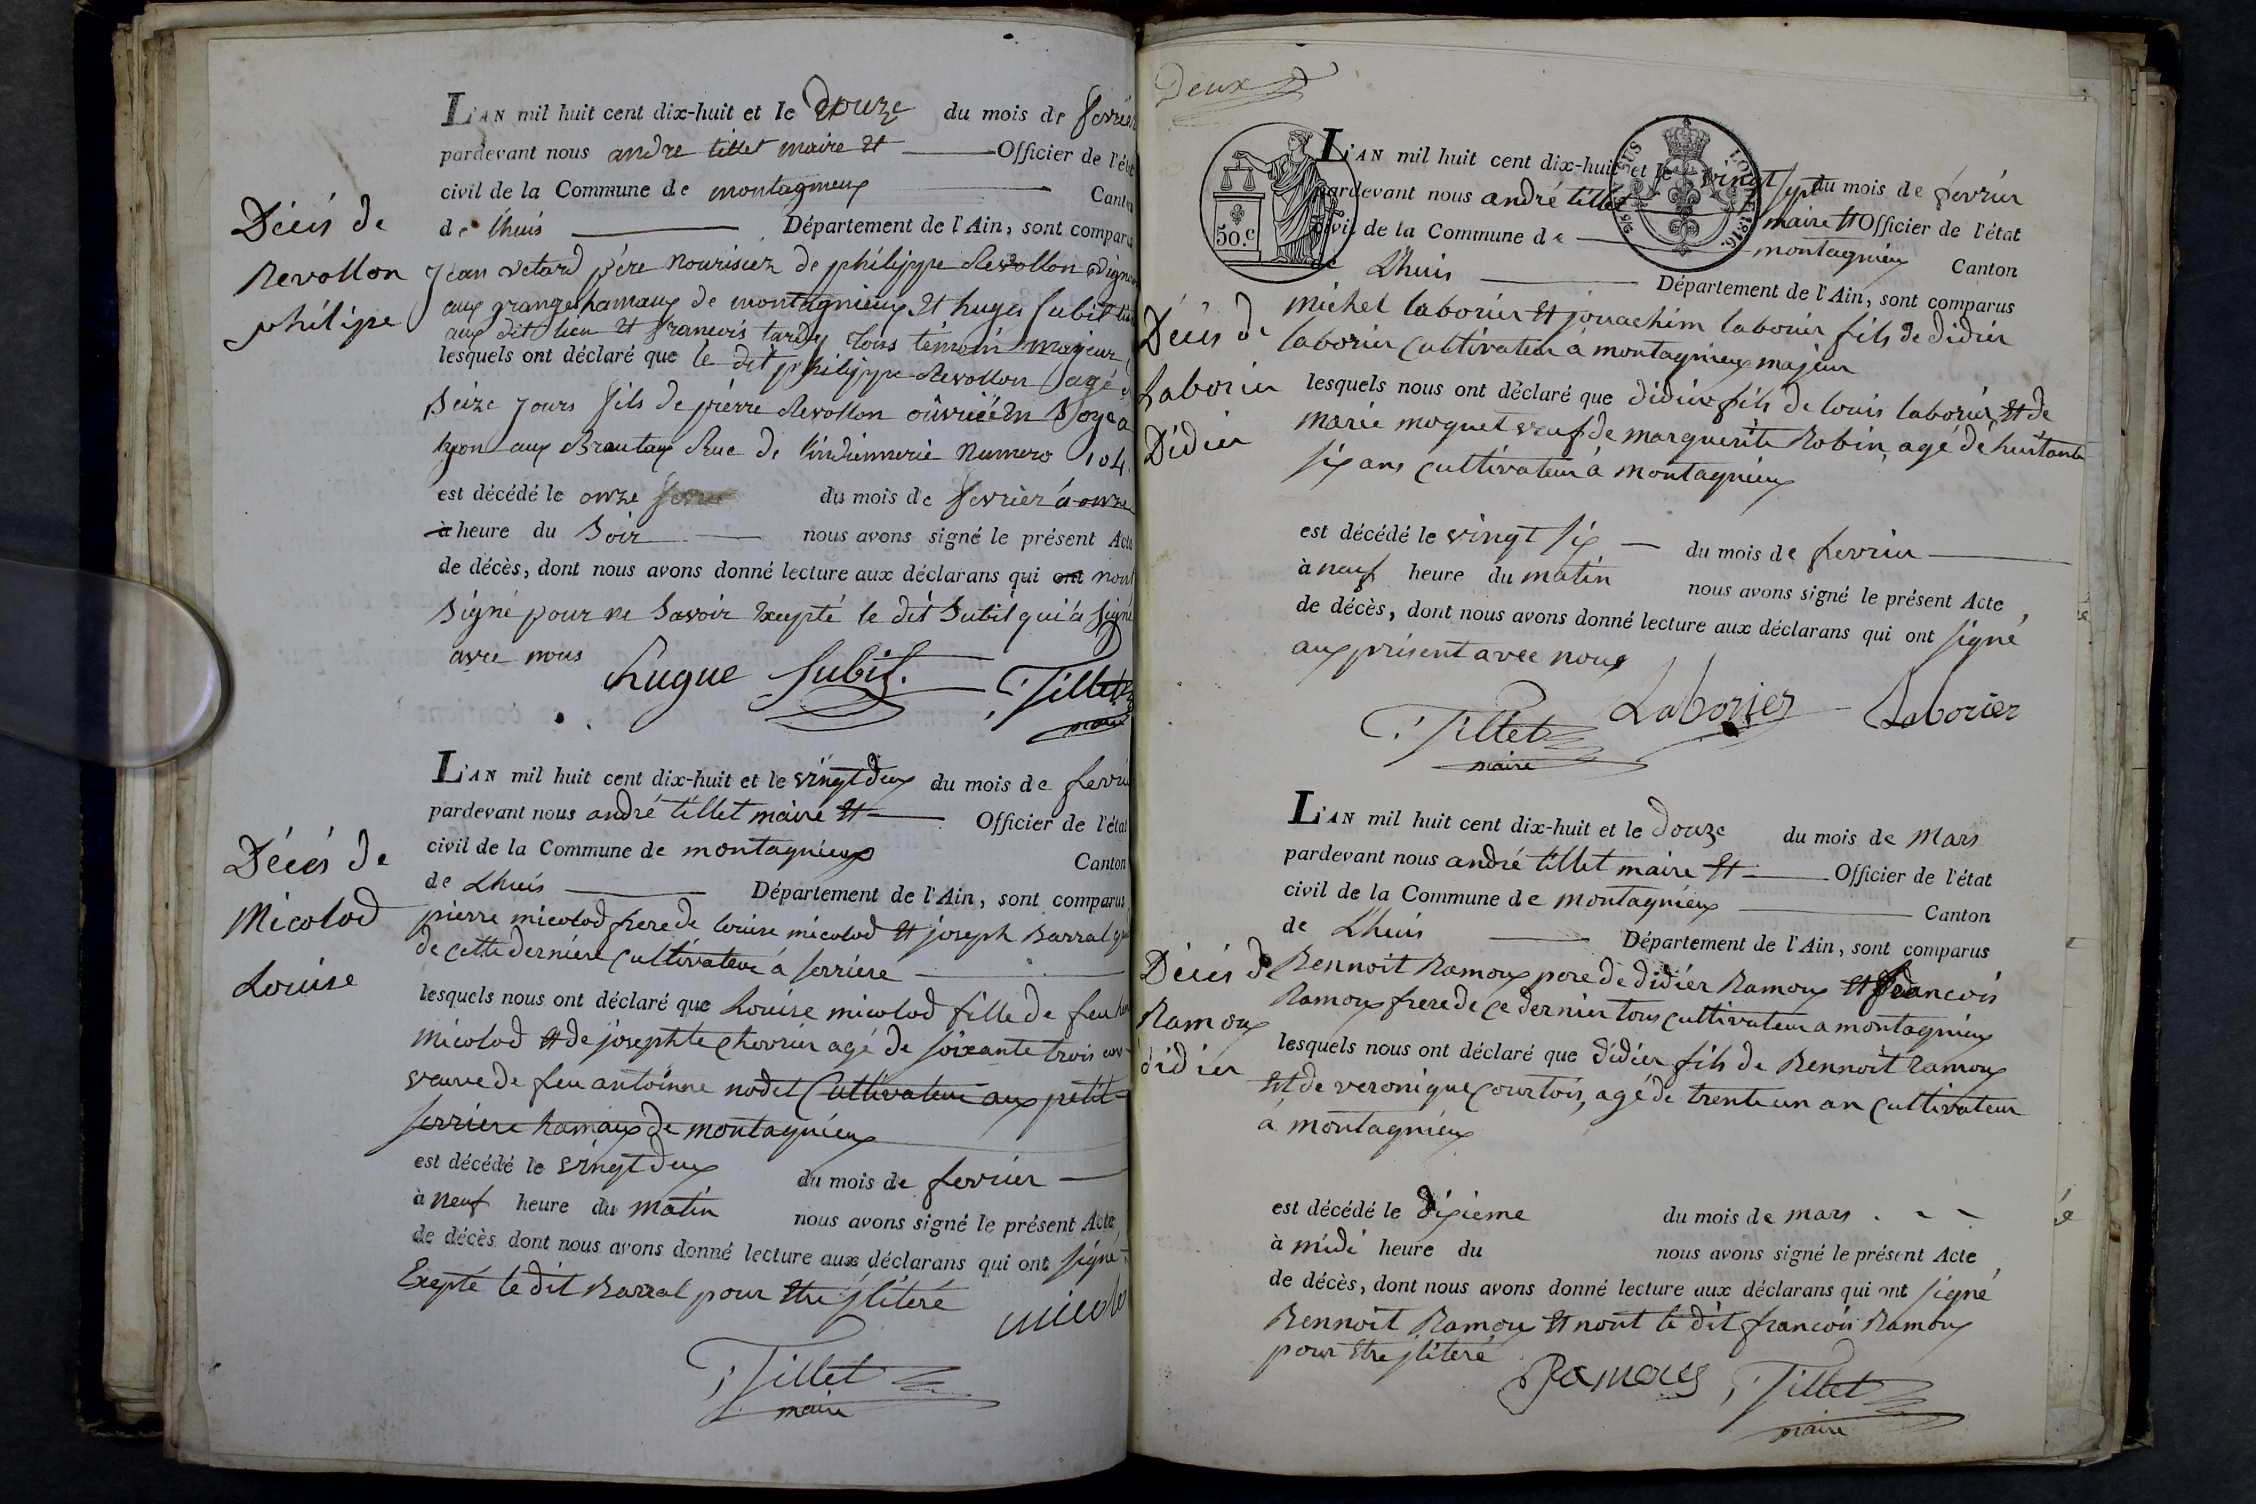 L'AN mil huit cent dix-huit et le douze du mois de fevrier
pardevant nous andre tillet maire et Officier de l'état
civil de la Commune de montagnieux Canton
de Lhuis Département de l'Ain, sont comparus
Décés de
Revollon
philipe
jean vetard pére nourisiez de philippe Revollon
aux granges hamaux de montagnieux et huges Subit
aux dit lieu et francois tardy tous témoin majeur
lesquels ont déclaré que le dit philippe Revollon agé de
seize jours fils de piérre Revollon oûvriéé en soye a
lyon aux Brautaux Rue de l'indiennerie Numero 104.
est décédé le onze du mois de fevriér á onze
à heure du soir nous avons signé le présent Acte
de décès, dont nous avons donné lecture aux déclarans qui ont nont
signé pour ne savoir Excepté le dit Subit qui a signé
avec nous
hugue Subit. Tillet
maire
L'AN mil huit cent dix-huit et le vingt deux du mois de fevrier
pardevant nous andré tillet maire et Officier de l'état
civil de la Commune de montagnieux Canton
de Lhuis Département de l'Ain, sont comparus
Décés de
Micolod
Louise
pierre micolod frere de louise micolod et joseph Barral
de cette derniére cultivateur á serriére
lesquels nous ont déclaré que Louise micolod fille de feu
micolod et de josephte chevrier agé de soixante trois
veuve de feu antoinne nodet Cultivateur aux petit
serriére hamaux de montagniéux
est décédé le vingt deux du mois de fevrier
à neuf heure du matin nous avons signé le présent Acte
de décès dont nous avons donné lecture aux déclarans qui ont signé
Exepté le dit Barral pour Etre jlitéré
micolod
Tillet
maire
Deux
50.c
L'AN mil huit cent dix-huit et le vingt sept du mois de fevrier
pardevant nous andré tillet maire et Officier de l'état
civil de la Commune de montagniéux Canton
de Lhuis Département de l'Ain, sont comparus
Décés de
Laborier
Didier
michel laborier et jouachim laborier fils de didier
laborier Cultivateur á montagnieux majeur
lesquels nous ont déclaré que didiér fils de louis laboriér et de
marie moquet veuf de marguerite Robin, agé de huitante
six ans cultivateur á montagnieux
est décédé le vingt six du mois de fevrier
à neuf heure du matin nous avons signé le présent Acte
de décès, dont nous avons donné lecture aux déclarans qui ont signé
aux présent avec nous
Tillet Laborier Laborier
maire
L'AN mil huit cent dix-huit et le douze du mois de mars
pardevant nous andré tillet maire et Officier de l'état
civil de la Commune de montagniéux Canton
de Lhuis Département de l'Ain, sont comparus
Décés de
Ramoux
didier
Bennoit Ramoux pere de didiér Ramoux et francois
Ramoux frere de ce dernier tous cultivateur a montagnieux
lesquels nous ont déclaré que didier fils de Bennoit Ramoux
et de veronique Courtois, agé de trente un an cultivateur
á montagniéux
est décédé le dixieme du mois de mars
à midi heure du nous avons signé le présent Acte
de décès, dont nous avons donné lecture aux déclarans qui ont signé
Bennoit Ramoux et nont le dit francois Ramoux
pour Etre jliteré
B Ramoux Tillet
maire